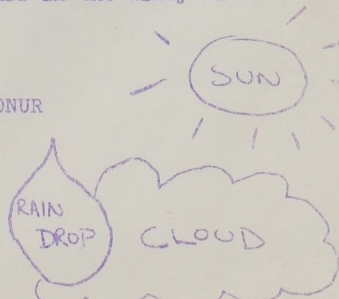 SUN
ONUR
RAIN
DROP
CLOUD